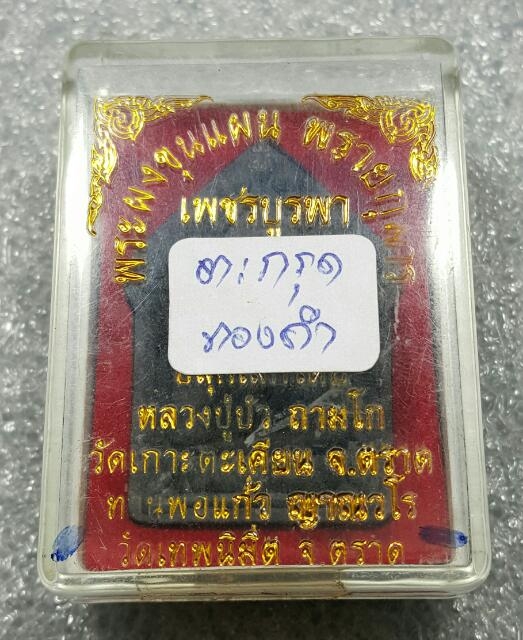 พระผงขุนแผน พรายกุมาร
เพชรบูรพา
ตะกรุด
ทองคำ
หลวงปู่บัว ถามโก
วัดเกาะตะเคียน จ.ตราด
ท่านพ่อแก้ว ญาณวโร
วัดเทพนิมิต จ.ตราด